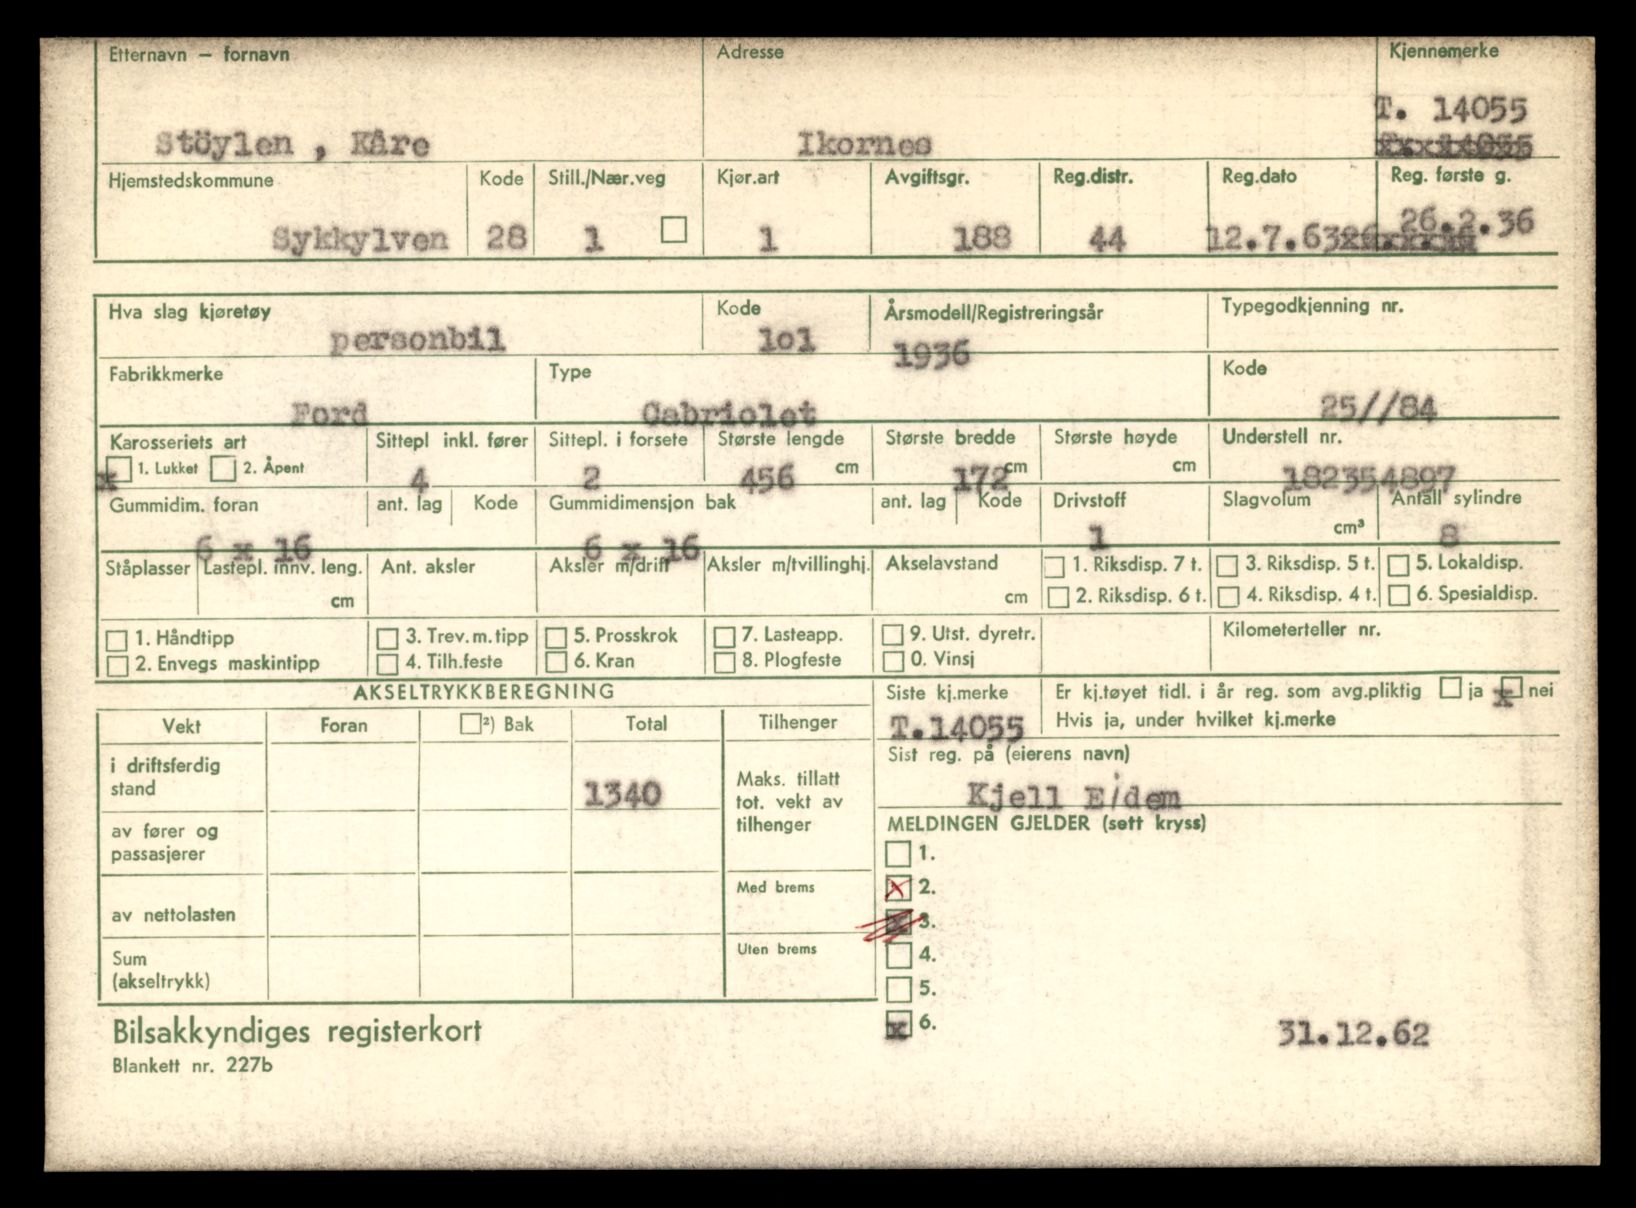 Etternavn — fornavn Adresse Kjennemerke
T. 14055
Stöylen , Kåre Ikornes T. 14055
Hjemstedskommune Kode Still./Nær.veg Kjør.art Avgiftsgr. Reg.distr. Reg.dato Reg. første g.
26.2.36
Sykkylven 28 1 1 188 44 12.7.63
Hva slag kjøretøy Kode Årsmodell/Registreringsår Typegodkjenning nr.
personbil 1o1 1936
Fabrikkmerke Type Kode
Ford Cabriolet 25//84
Karosseriets art Sittepl inkl. fører Sittepl. i forsete Største lengde Største bredde Største høyde Understell nr.
x 1. Lukket 2. Åpent 4 2 456 cm 172 cm cm 182354897
Gummidim. foran ant. lag Kode Gummidimensjon bak ant. lag Kode Drivstoff Slagvolum Antall sylindre
6 x 16 6 x 16 1 cm³ 8
Ståplasser Lastepl. innv. leng. Ant. aksler Aksler m/drift Aksler m/tvillinghj. Akselavstand 1. Riksdisp. 7 t. 3. Riksdisp. 5 t. 5. Lokaldisp.
cm cm 2. Riksdisp. 6 t. 4. Riksdisp. 4 t. 6. Spesialdisp.
1. Håndtipp 3. Trev.m.tipp 5. Prosskrok 7. Lasteapp. 9. Utst. dyretr. Kilometerteller nr.
2. Envegs maskintipp 4. Tilh.feste 6. Kran 8. Plogfeste 0. Vinsj
AKSELTRYKKBEREGNING Siste kj.merke Er kj.tøyet tidl. i år reg. som avg.pliktig ja x nei
Vekt Foran ²) Bak Total Tilhenger T.14055 Hvis ja, under hvilket kj.merke
i driftsferdig Sist reg. på (eierens navn)
stand 1340 Maks. tillatt Kjell Eidem
tot. vekt av
av fører og tilhenger MELDINGEN GJELDER (sett kryss)
passasjerer 1.
Med brems x 2.
av nettolasten x 3.
Sum Uten brems 4.
(akseltrykk) 5.
Bilsakkyndiges registerkort x 6. 31.12.62
Blankett nr. 227b